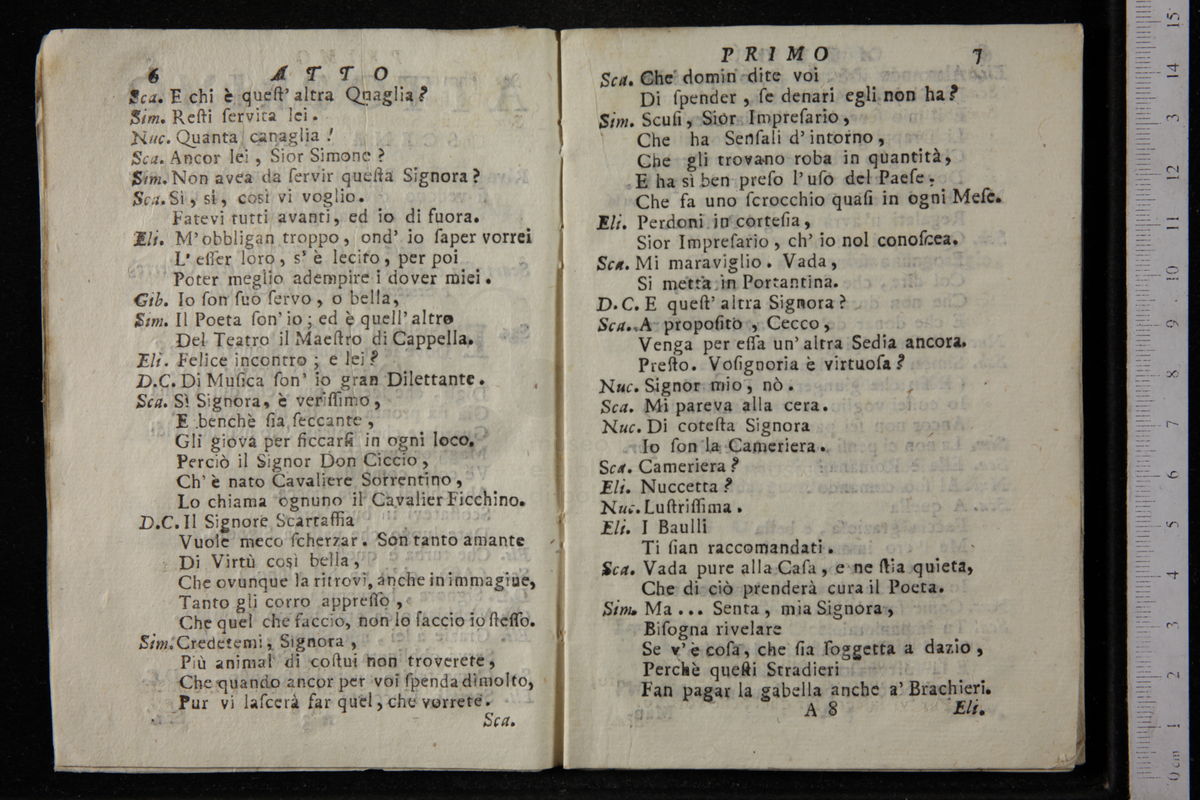 6 ATTO
Sca. E chi è queſt' altra Quaglia?
Sim. Reſti ſervita lei.
Nuc. Quanta canaglia!
Sca. Ancor lei, Sior Simone?
Sim. Non avea da ſervir queſta Signora?
Sca. Sì, sì, così vi voglio.
Fatevi tutti avanti, ed io di fuora.
Eli. M'obbligan troppo, ond' io ſaper vorrei
L'eſſer loro, s'è lecito, per poi
Poter meglio adempire i dover miei.
Gib. Io ſon ſuo ſervo, o bella,
Sim. Il Poeta ſon'io; ed è quell'altro
Del Teatro il Maeſtro di Cappella.
Eli. Felice incontro; e lei?
D.C. Di Muſica ſon' io gran Dilettante.
Sca. Sì Signora, è veriſſimo,
E benchè ſia ſeccante,
Gli giova per ficcarſi in ogni loco.
Perciò il Signor Don Ciccio,
Ch'è nato Cavaliere Sorrentino,
Lo chiama ognuno il Cavalier Ficchino.
D.C. Il Signore Scartaffia
Vuole meco ſcherzar. Son tanto amante
Di Virtù così bella,
Che ovunque la ritrovi, anche in immagine,
Tanto gli corro appreſſo,
Che quel che faccio, non lo faccio io ſteſſo.
Sim. Credetemi, Signora,
Più animal di coſtui non troverete,
Che quando ancor per voi ſpenda dimolto,
Pur vi laſcerà far quel, che vorrete.
Sca.
PRIMO 7
Sca. Che domin dite voi
Di ſpender, ſe denari egli non ha?
Sim. Scuſi, Sior Impreſario,
Che ha Senſali d'intorno,
Che gli trovano roba in quantità,
E ha sì ben preſo l'uſo del Paeſe,
Che fa uno ſcrocchio quaſi in ogni Meſe.
Eli. Perdoni in corteſia,
Sior Impreſario, ch' io nol conoſcea.
Sca. Mi maraviglio. Vada,
Si metta in Portantina.
D.C. E queſt' altra Signora?
Sca. A propoſito, Cecco,
Venga per eſſa un'altra Sedia ancora.
Preſto. Voſignoria è virtuoſa?
Nuc. Signor mio, nò.
Sca. Mi pareva alla cera.
Nuc. Di coteſta Signora
Io ſon la Cameriera.
Sca. Cameriera?
Eli. Nuccetta?
Nuc. Luſtriſſima.
Eli. I Baulli
Ti ſian raccomandati.
Sca. Vada pure alla Caſa, e ne ſtia quieta,
Che di ciò prenderà cura il Poeta.
Sim. Ma... Senta, mia Signora,
Biſogna rivelare
Se v'è coſa, che ſia ſoggetta a dazio,
Perchè queſti Stradieri
Fan pagar la gabella anche a' Brachieri.
A 8 Eli.
15
14
13
12
11
10
9
8
7
6
5
4
3
2
1
0 cm